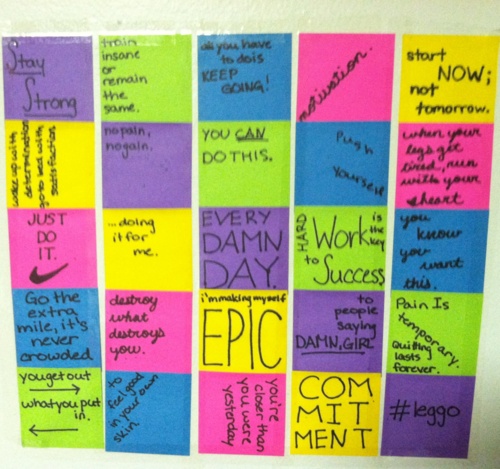 Stay
Strong
train
insane
or
remain
the
same.
all you have
to do is
KEEP
GOING!
motivation.
start
NOW;
not
tomorrow.
wake up with
determination
go to bed with
satisfaction
no pain,
no gain.
YOU CAN
DO THIS.
Push
Yourself
when your
legs get
tired, run
with your
heart
JUST
DO
IT.
...doing
it for
me.
EVERY
DAMN
DAY.
HARD Work is the key
to Success
you
know
you
want
this.
Go the
extra
mile, it's
never
crowded
destroy
what
destroys
you.
i'm making myself
EPIC
to
people
saying
DAMN, GIRL
Pain Is
temporary.
Quitting
lasts
forever.
you get out
what you put
in.
to
feel good
in your own
skin.
you're
closer than
you were
yesterday
COM
MIT
MENT
#leggo